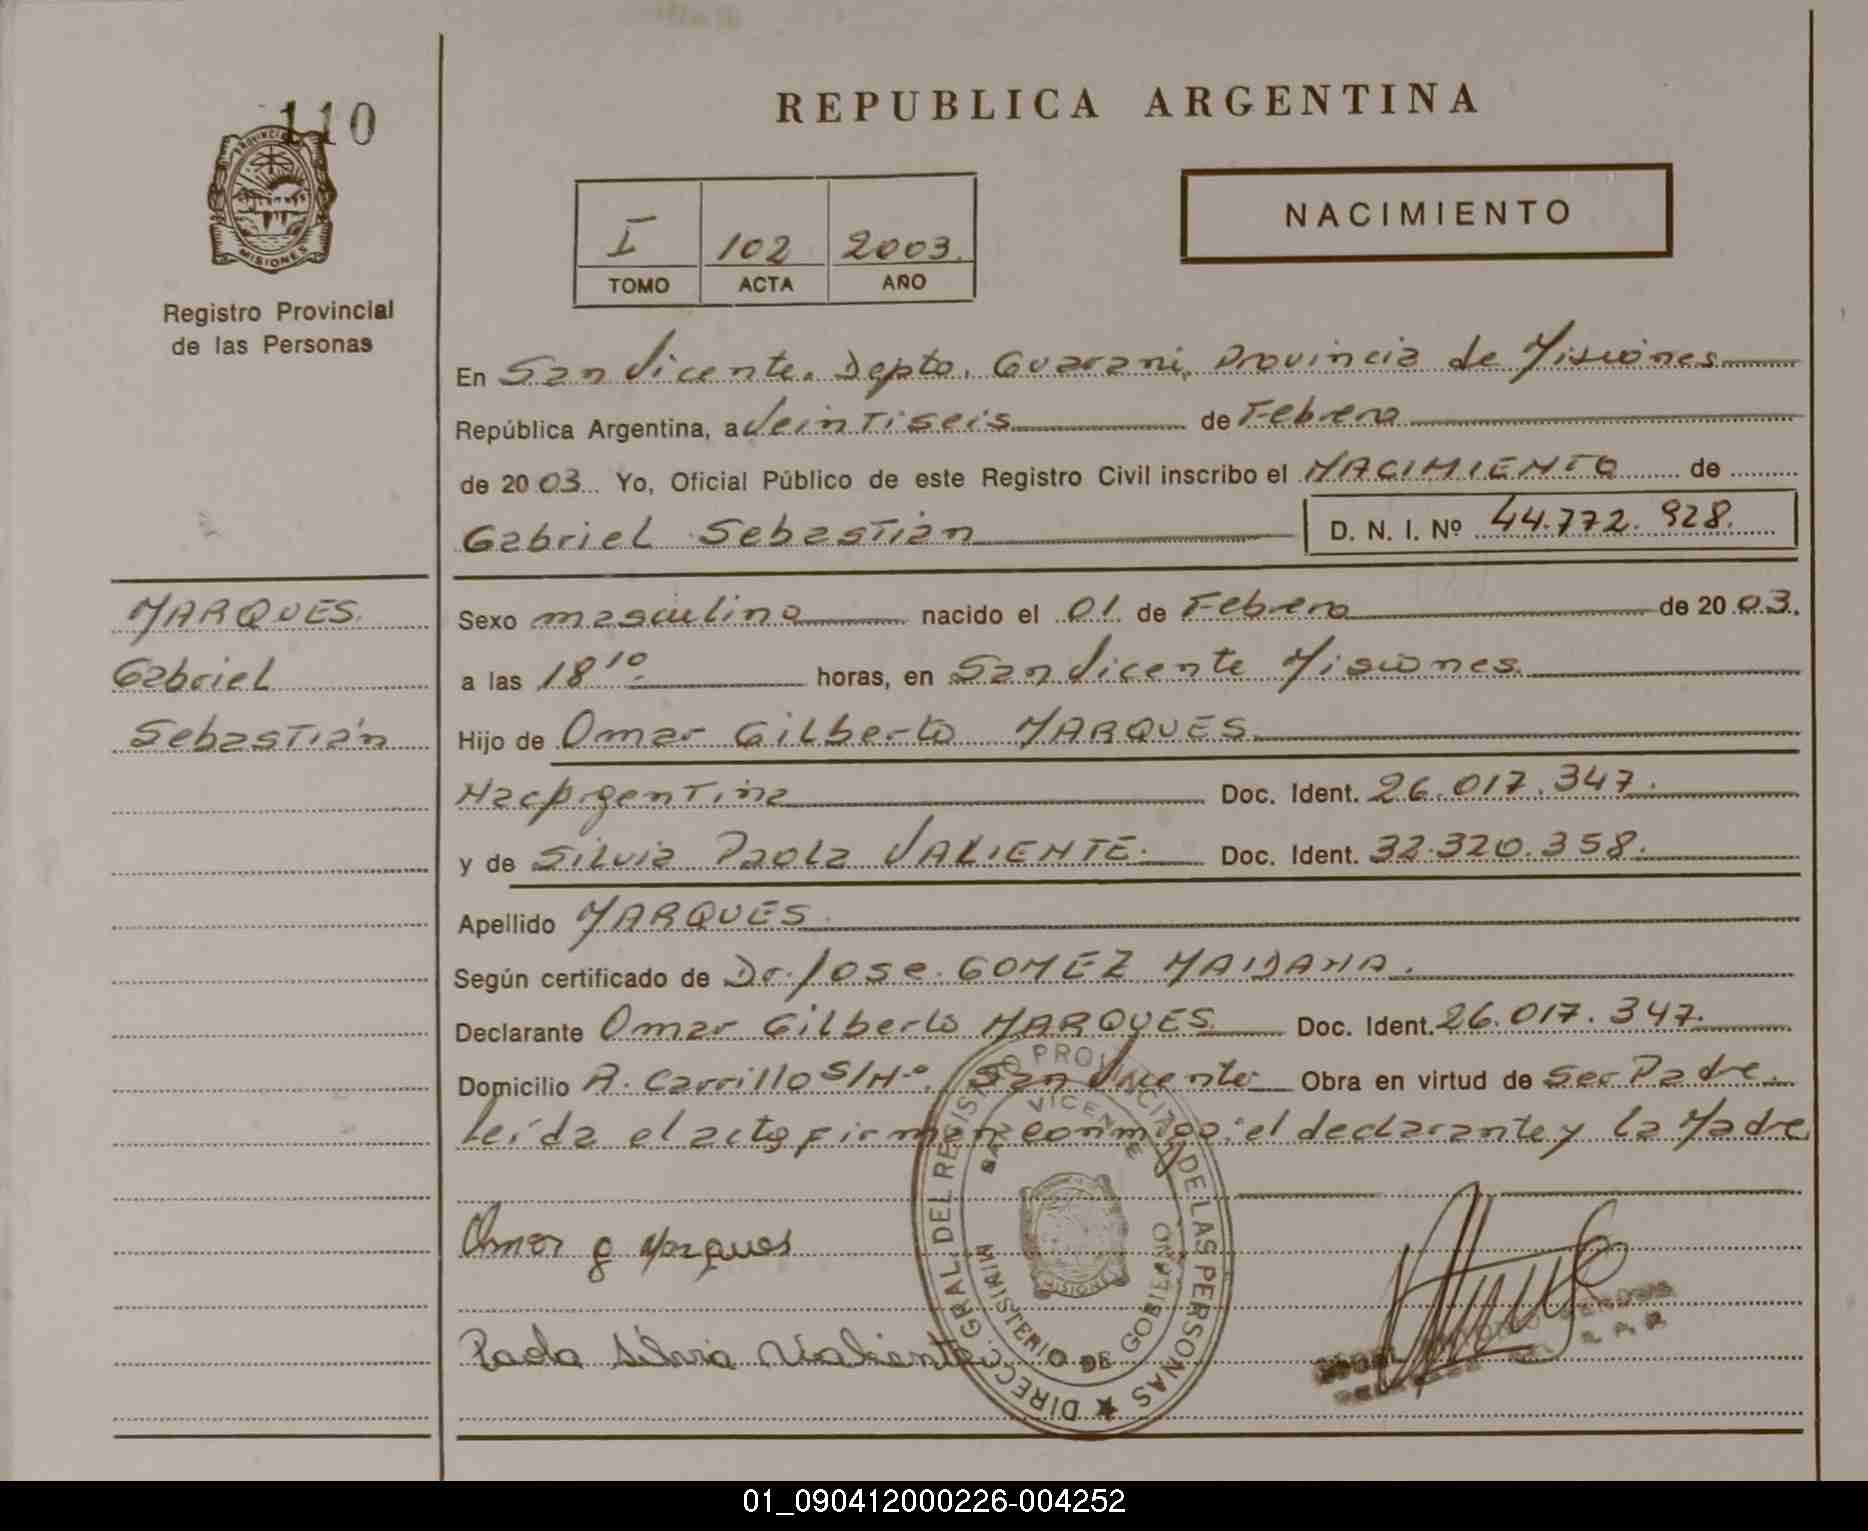 110
PROVINCIA
MISIONES
Registro Provincial
de las Personas
REPUBLICA ARGENTINA
I 102 2003.
TOMO ACTA AÑO
NACIMIENTO
En San Vicente. Depto. Guarani, Provincia de Misiones
República Argentina, a Veintiseis de Febrero
de 2003 Yo, Oficial Público de este Registro Civil inscribo el NACIMIENTO de
Gabriel Sebastián D. N. I. Nº 44.772.928.
MARQUES
Gabriel
Sebastián
Sexo masculino nacido el 01 de Febrero de 2003.
a las 18 10 horas, en San Vicente Misiones
Hijo de Omar Gilberto MARQUES
Nac Argentina Doc. Ident. 26.017.347.
y de Silvia Paola VALIENTE. Doc. Ident. 32.320.358.
Apellido MARQUES.
Según certificado de Dr. Jose GOMEZ MAIDANA.
Declarante Omar Gilberto MARQUES Doc. Ident. 26.017.347.
Domicilio A. Carrillo S/Nº. San Vicente Obra en virtud de Ser Padre.
Leída el acta firman conmigo: el declarante y la Madre
Omar g Marques
Paola Silvia Valiente
DIREC. GRAL. DEL REGISTRO PROVINCIAL DE LAS PERSONAS
SAN VICENTE
MINISTERIO DE GOBIERNO
MISIONES
01_090412000226-004252